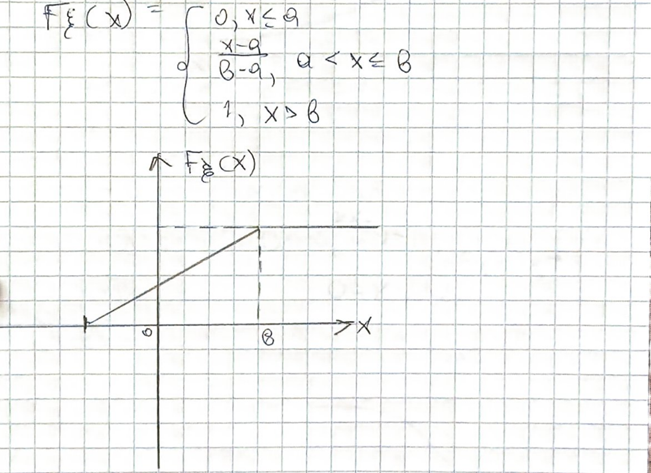 Fξ(x) = { 0, x ≤ a
x-a / b-a, a < x ≤ b
1, x > b
Fξ(x)
0 b x